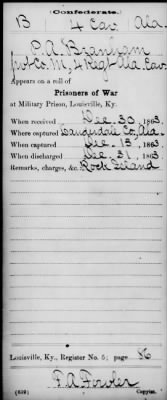 Confederate.
B 4 Cav Ala.
P. A. Branyam
pvt Co. M, 4 Regt Ala. Cav.
Appears on a roll of
Prisoners of War
at Military Prison, Louisville, Ky.
When received Dec. 30, 1863.
Where captured Lauderdale Co, Ala.
When captured Dec. 13, 1863.
When discharged Dec. 31, 1863.
Remarks, charges, &c. Rock Island
Louisville, Ky., Register No. 5; page 86
F. A. Fowler
(639) Copyist.